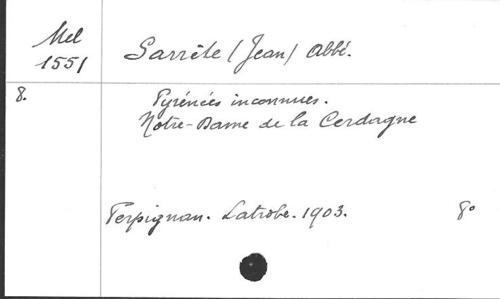 Mel
1551
Sarrète (Jean) Abbé.
8.
Pyrénées inconnues.
Notre-Dame de la Cerdagne
Perpignan. Latrobe. 1903.
8°